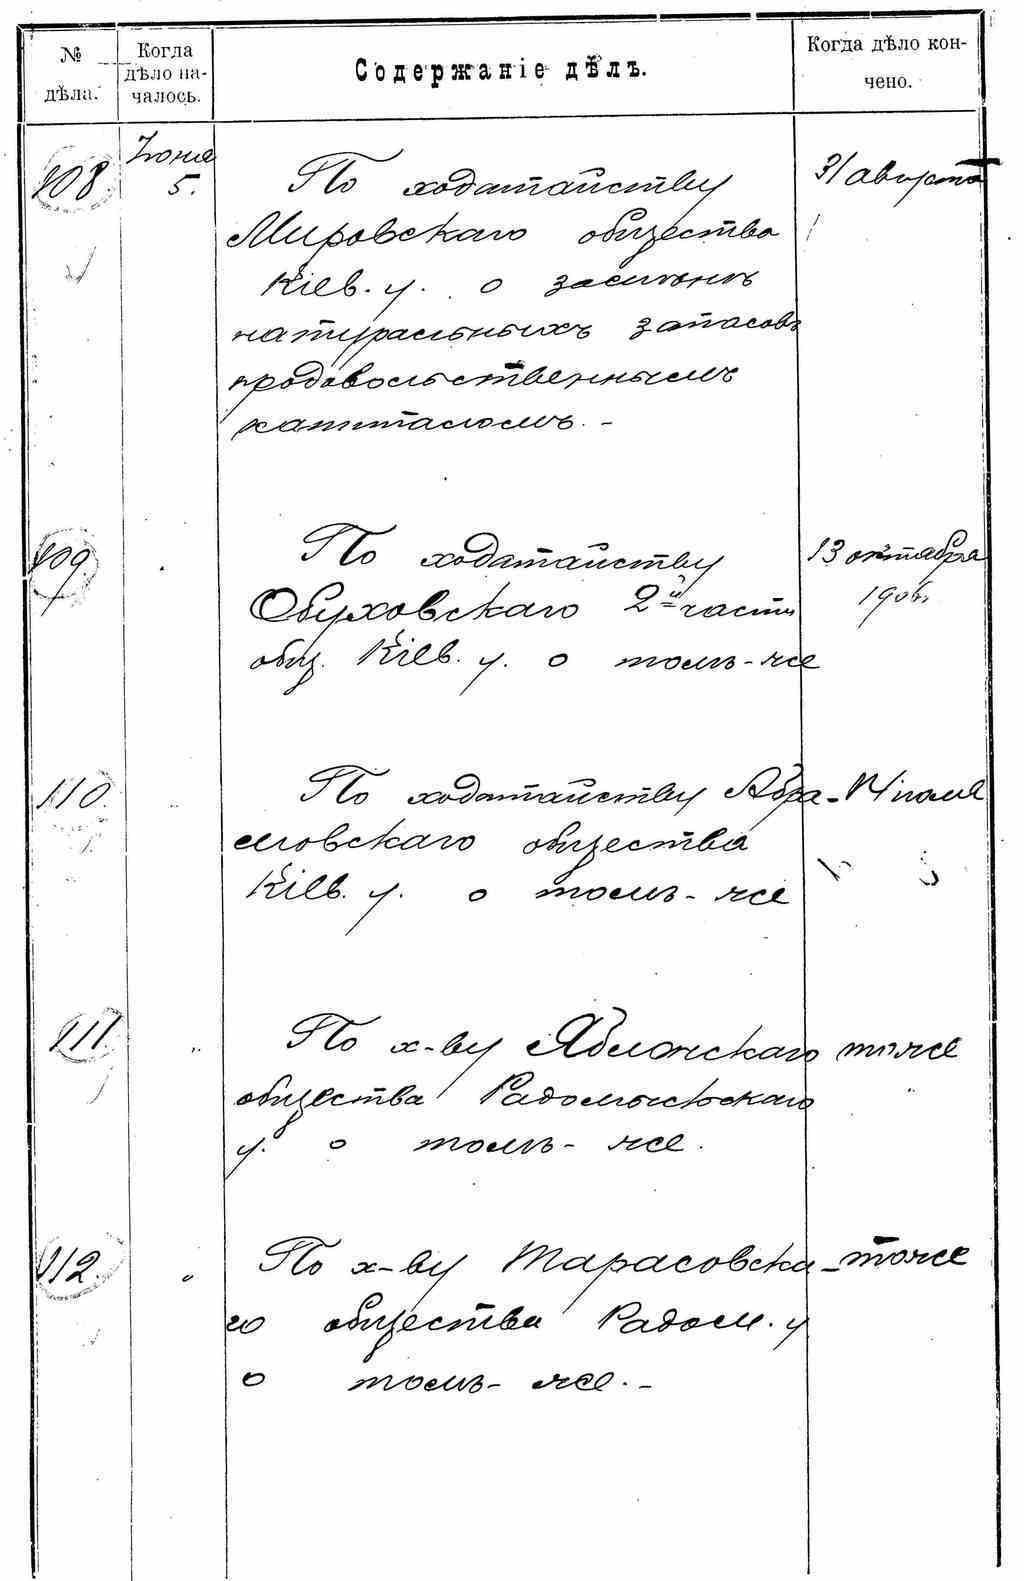 № дѣла.
Когда дѣло на-
чалось.
Содержаніе дѣлъ.
Когда дѣло кон-
чено.
108
Іюня
5.
По ходатайству
Мировскаго общества
Кіев. у. о замѣнѣ
натуральныхъ запасовъ
продовольственнымъ
капиталомъ. -
31 августа
109
По ходатайству
Обуховскаго 2й части
общ. Кіев. у. о томъ-же
13 октября
1906.
110.
"
По ходатайству Абра-
мовскаго общества
Кіев. у. о томъ-же
14 іюля
111.
"
По х-ву Яблонскаго
общества Радомысльскаго
у. о томъ-же.
тоже
112.
"
По х-ву Тарасовска-
го общества Радом. у
о томъ-же. -
тоже